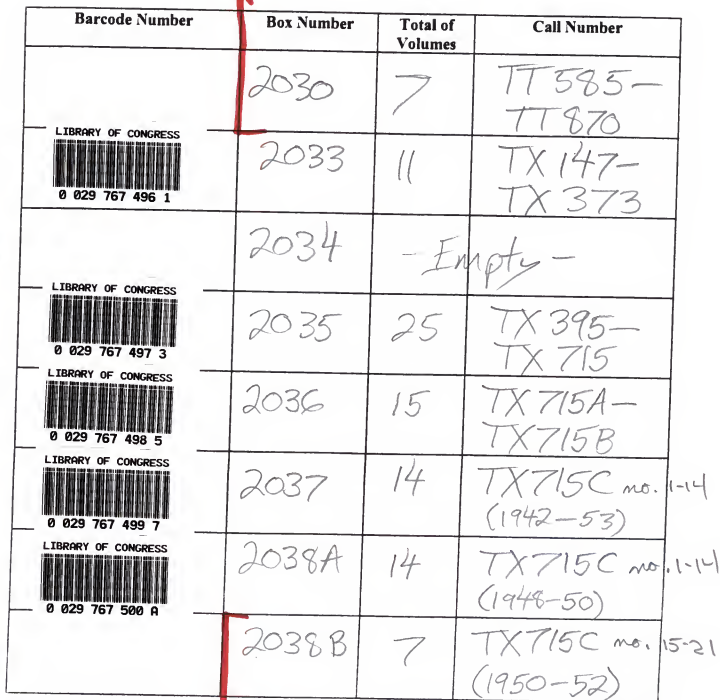 Barcode Number Box Number Total of Volumes Call Number
2030 7 TT 585—
TT 870
LIBRARY OF CONGRESS
0 029 767 496 1
2033 11 TX 147—
TX 373
2034 - Empty -
LIBRARY OF CONGRESS
0 029 767 497 3
2035 25 TX 395—
TX 715
LIBRARY OF CONGRESS
0 029 767 498 5
2036 15 TX 715A—
TX715B
LIBRARY OF CONGRESS
0 029 767 499 7
2037 14 TX715C no. 1-14
(1942—53)
LIBRARY OF CONGRESS
0 029 767 500 A
2038A 14 TX715C no. 1-14
(1948-50)
2038B 7 TX715C no. 15-21
(1950-52)